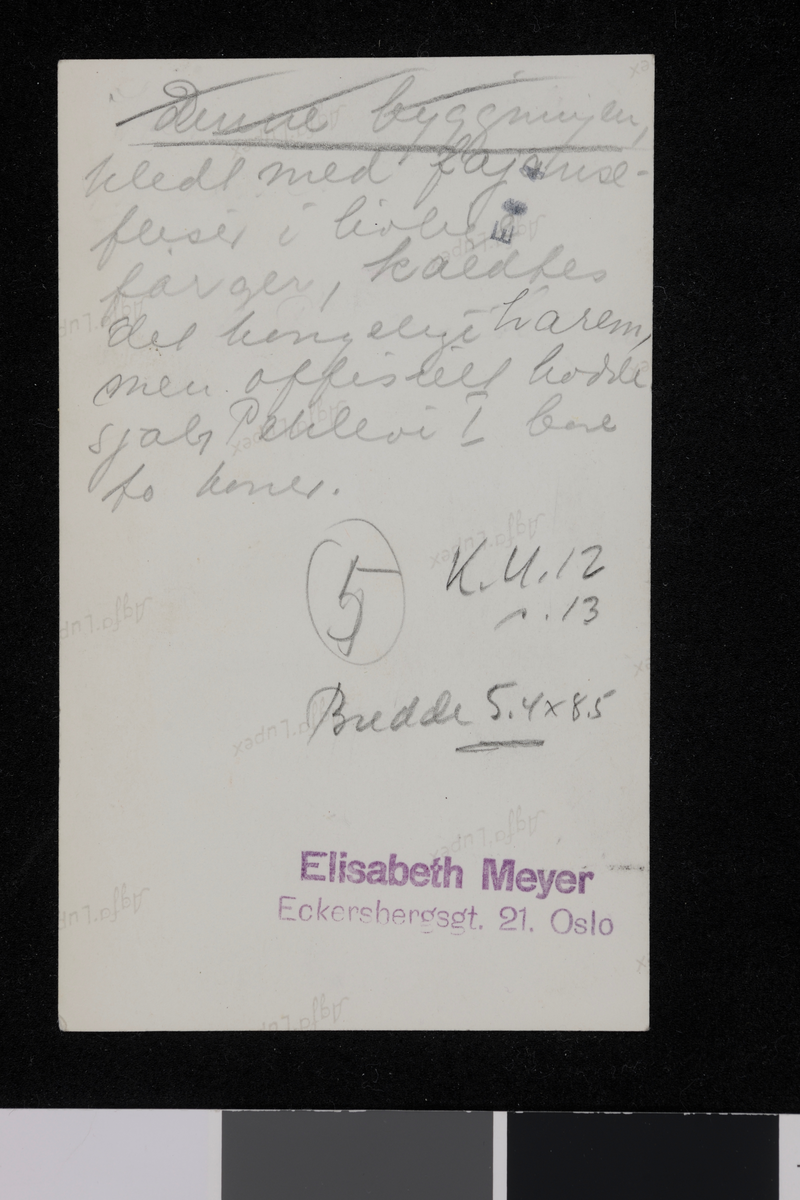 Denne byggningen,
kledt med fajanse-
fliser i livlige
farger, kaldtes
det kongelige harem,
men offisielt hadde
sjah Pehlevi I bare
to koner.
5
K.U.12
s.13
Bredde 5.4x8.5
Elisabeth Meyer
Eckersbergsgt. 21. Oslo
Agfa.Lupex